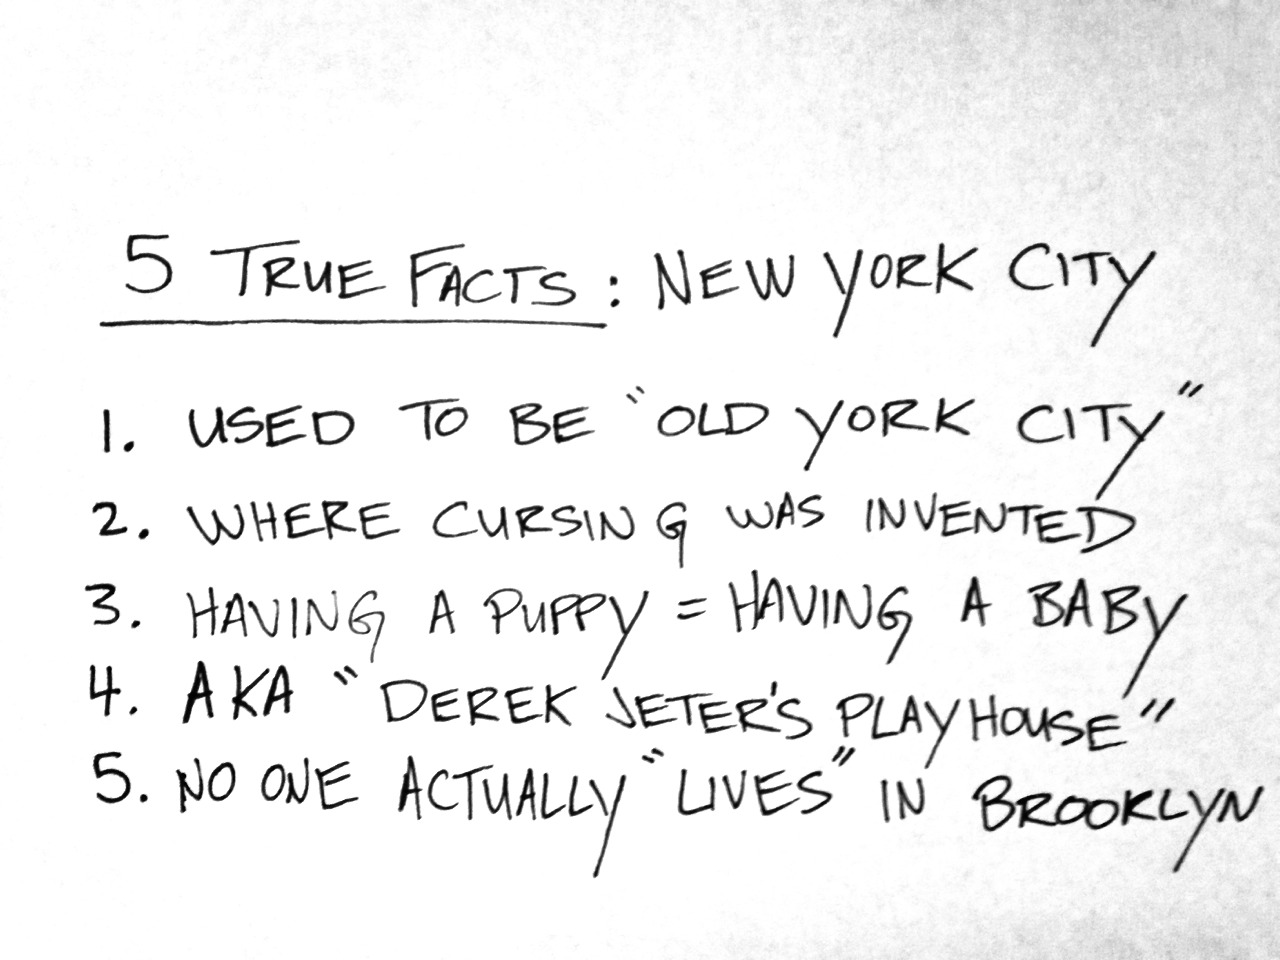 5 TRUE FACTS: NEW YORK CITY
1. USED TO BE "OLD YORK CITY"
2. WHERE CURSING WAS INVENTED
3. HAVING A PUPPY = HAVING A BABY
4. AKA "DEREK JETER'S PLAYHOUSE"
5. NO ONE ACTUALLY "LIVES" IN BROOKLYN